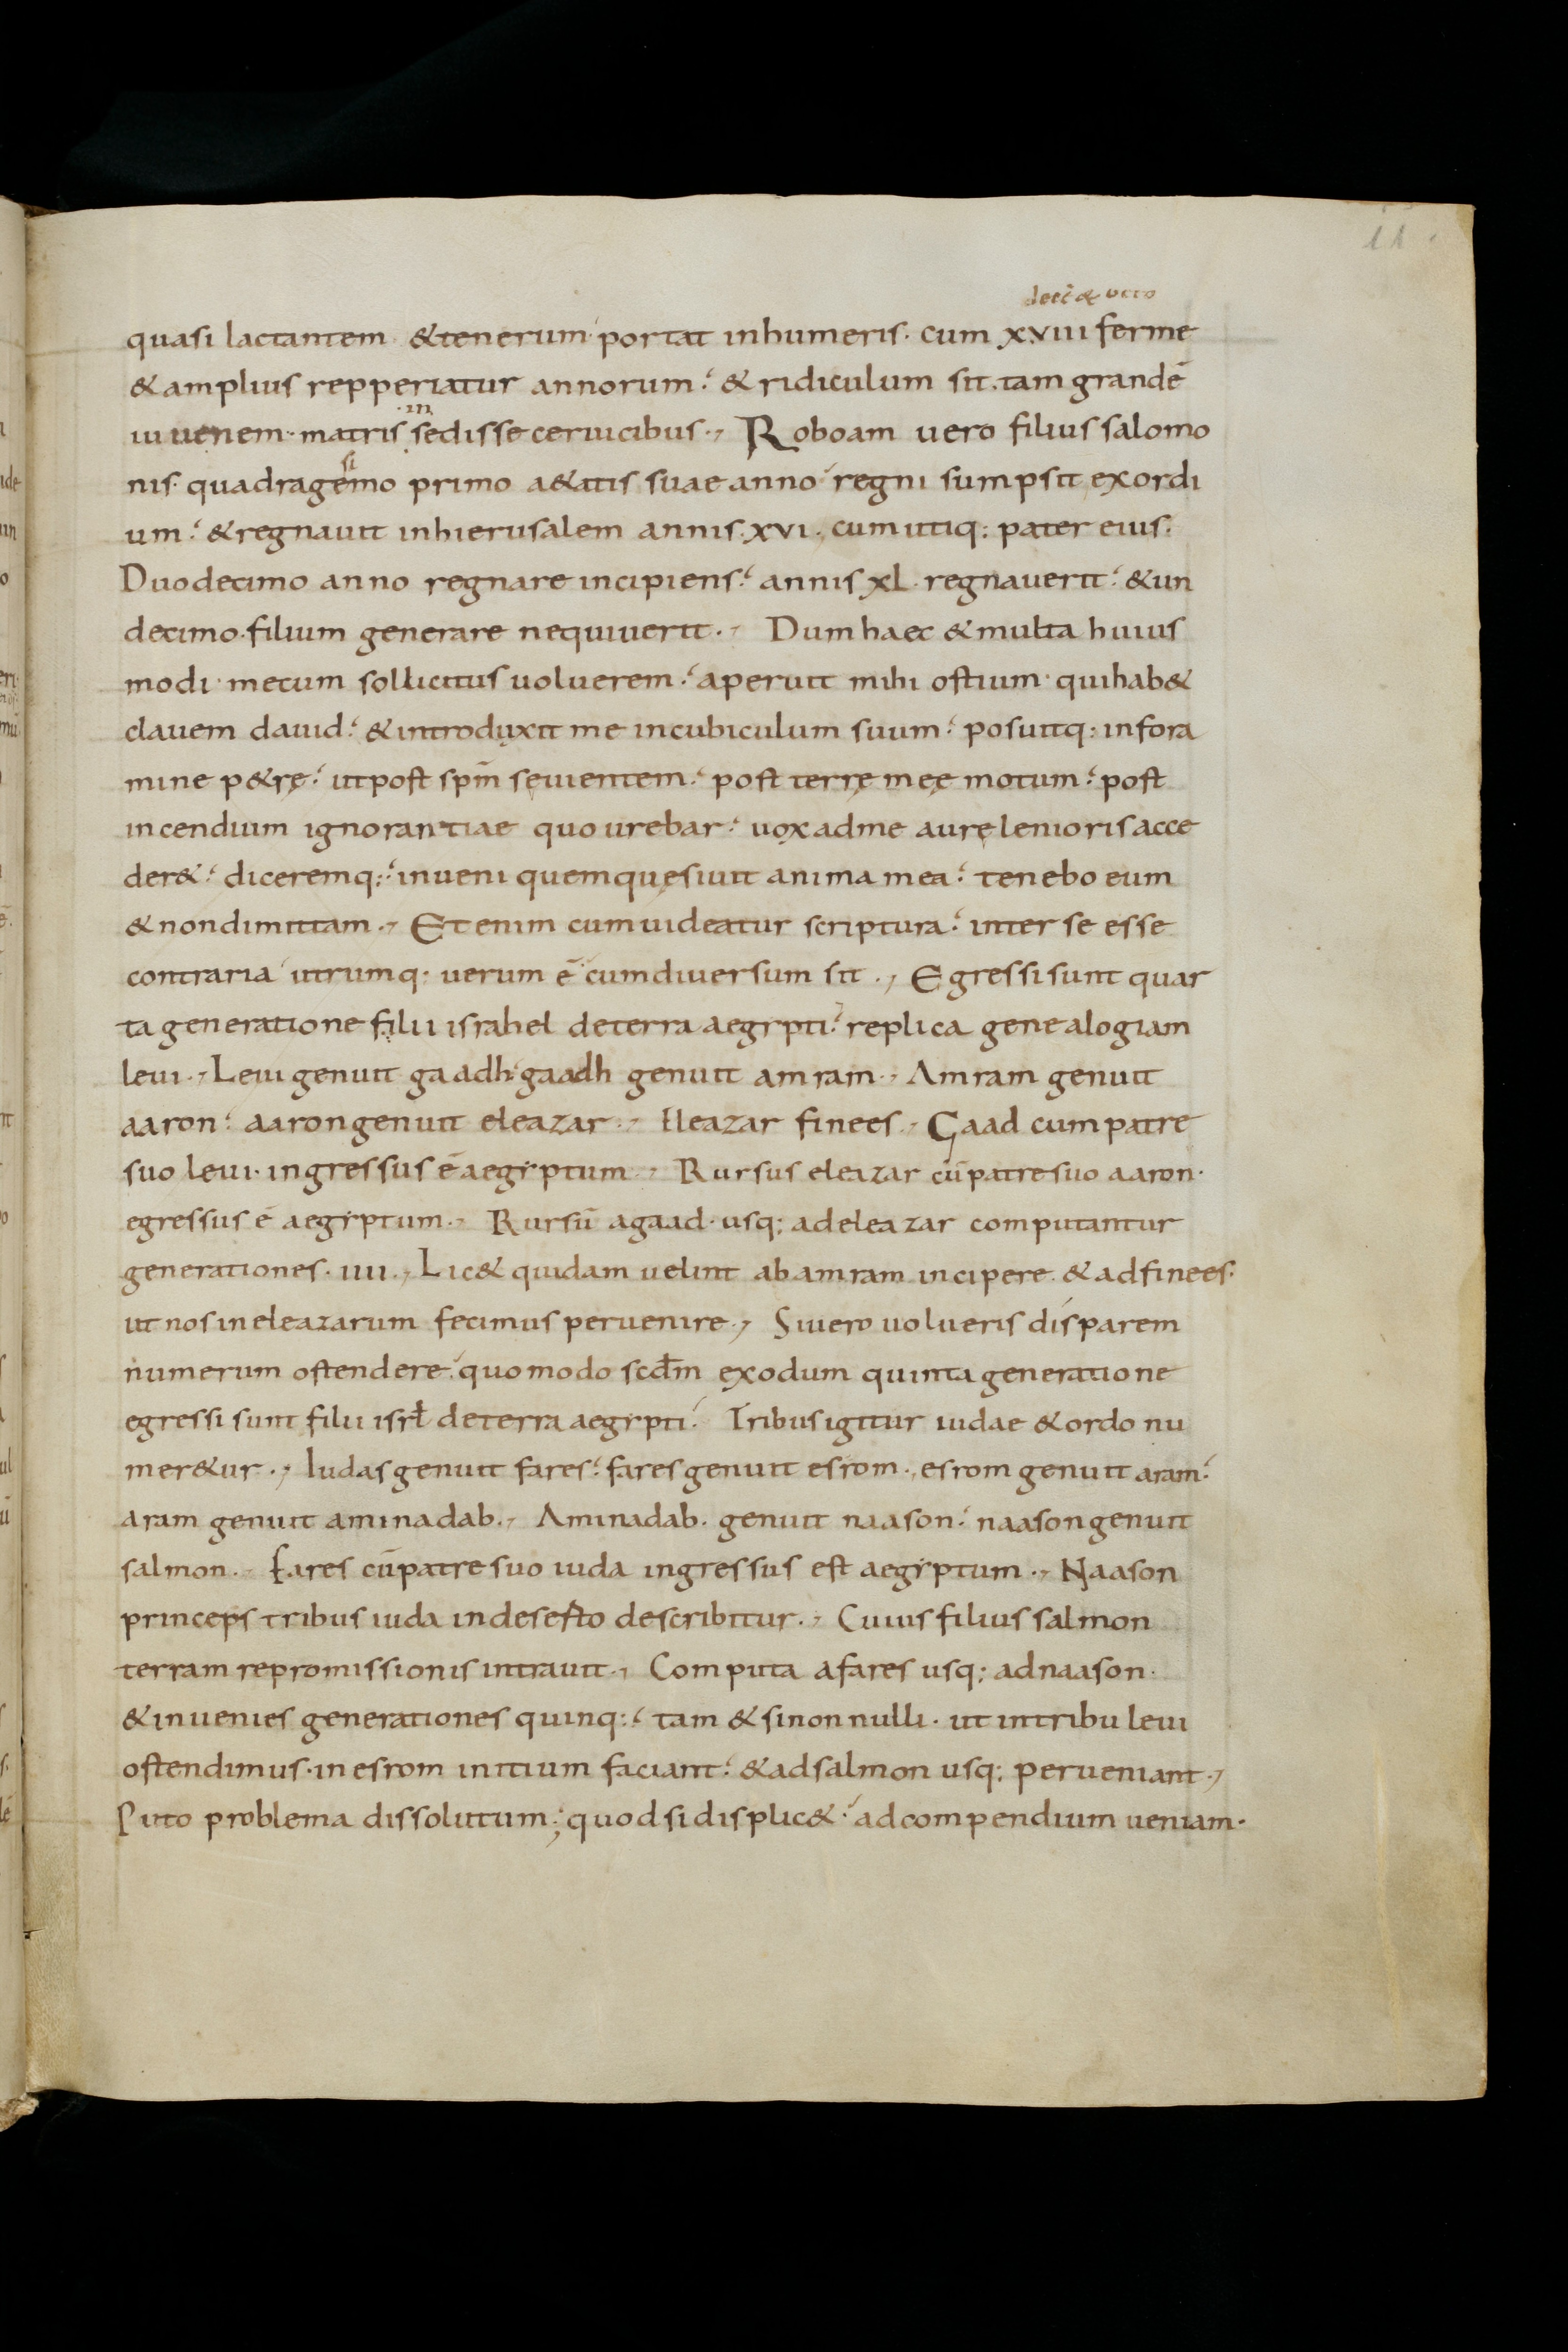 11
decē & octo
quasi lactantem & tenerum portat inhumeris. cum xviii ferme
& amplius repperiatur annorum? & ridiculum sit. tam grandē
iuuenem. matris in sedisse ceruicibus., Roboam uero filius salomo
nis. quadragesimo primo a&atis suae anno regni sumpsit exordi
um? & regnauit inhierusalem annis. xvi. cum utiq: pater eius.
Duodecimo anno regnare incipiens? annis xl. regnauerit? & un
decimo. filium generare nequiuerit., Dum haec & multa huius
modi. mecum sollicitus uoluerem? aperuit mihi ostium. qui hab&
clauem dauid? & introduxit me incubiculum suum? posuitq: infora
mine p&rę? ut post spm̄ sęuientem? post terrę meę motum? post
incendium ignorantiae quo urebar? uox adme aurę lenioris acce
der&? diceremq:? inueni quem quęsiuit anima mea? tenebo eum
& non dimittam., Et enim cum uideatur scriptura? inter se esse
contraria utrumq: uerum ē cum diuersum sit., Egressi sunt quar
ta generatione filii israhel deterra aegypti? replica genealogiam
leui., Leui genuit gaadh. gaadh genuit amram., Amram genuit
aaron? aaron genuit eleazar., Eleazar finees., Gaad cum patre
suo leui. ingressus ē aegyptum., Rursus eleazar cū patre suo aaron.
egressus ē aegyptum., Rursū agaad. usq; ad eleazar computantur
generationes. iiii., Lic& quidam uelint abamram incipere. & adfinees.
ut nos in eleazarum fecimus peruenire., Si uero uolueris disparem
numerum ostendere. quomodo scdm̄ exodum quinta generatione
egressi sunt filii isrł deterra aegypti? Tribus igitur iudae & ordo nu
mer&ur., Iudas genuit fares? fares genuit esrom., esrom genuit aram?
aram genuit aminadab., Aminadab. genuit naason? naason genuit
salmon., Fares cū patre suo iuda ingressus est aegyptum., Naason
princeps tribus iuda indeserto describitur., Cuius filius salmon
terram repromissionis intrauit., Computa afares usq; adnaason.
& inuenies generationes quinq:? tam & si non nulli. ut intribu leui
ostendimus. in esrom initium faciant? & ad salmon usq; perueniant.,
Puto problema dissolutum; quod si displic&? ad compendium ueniam.